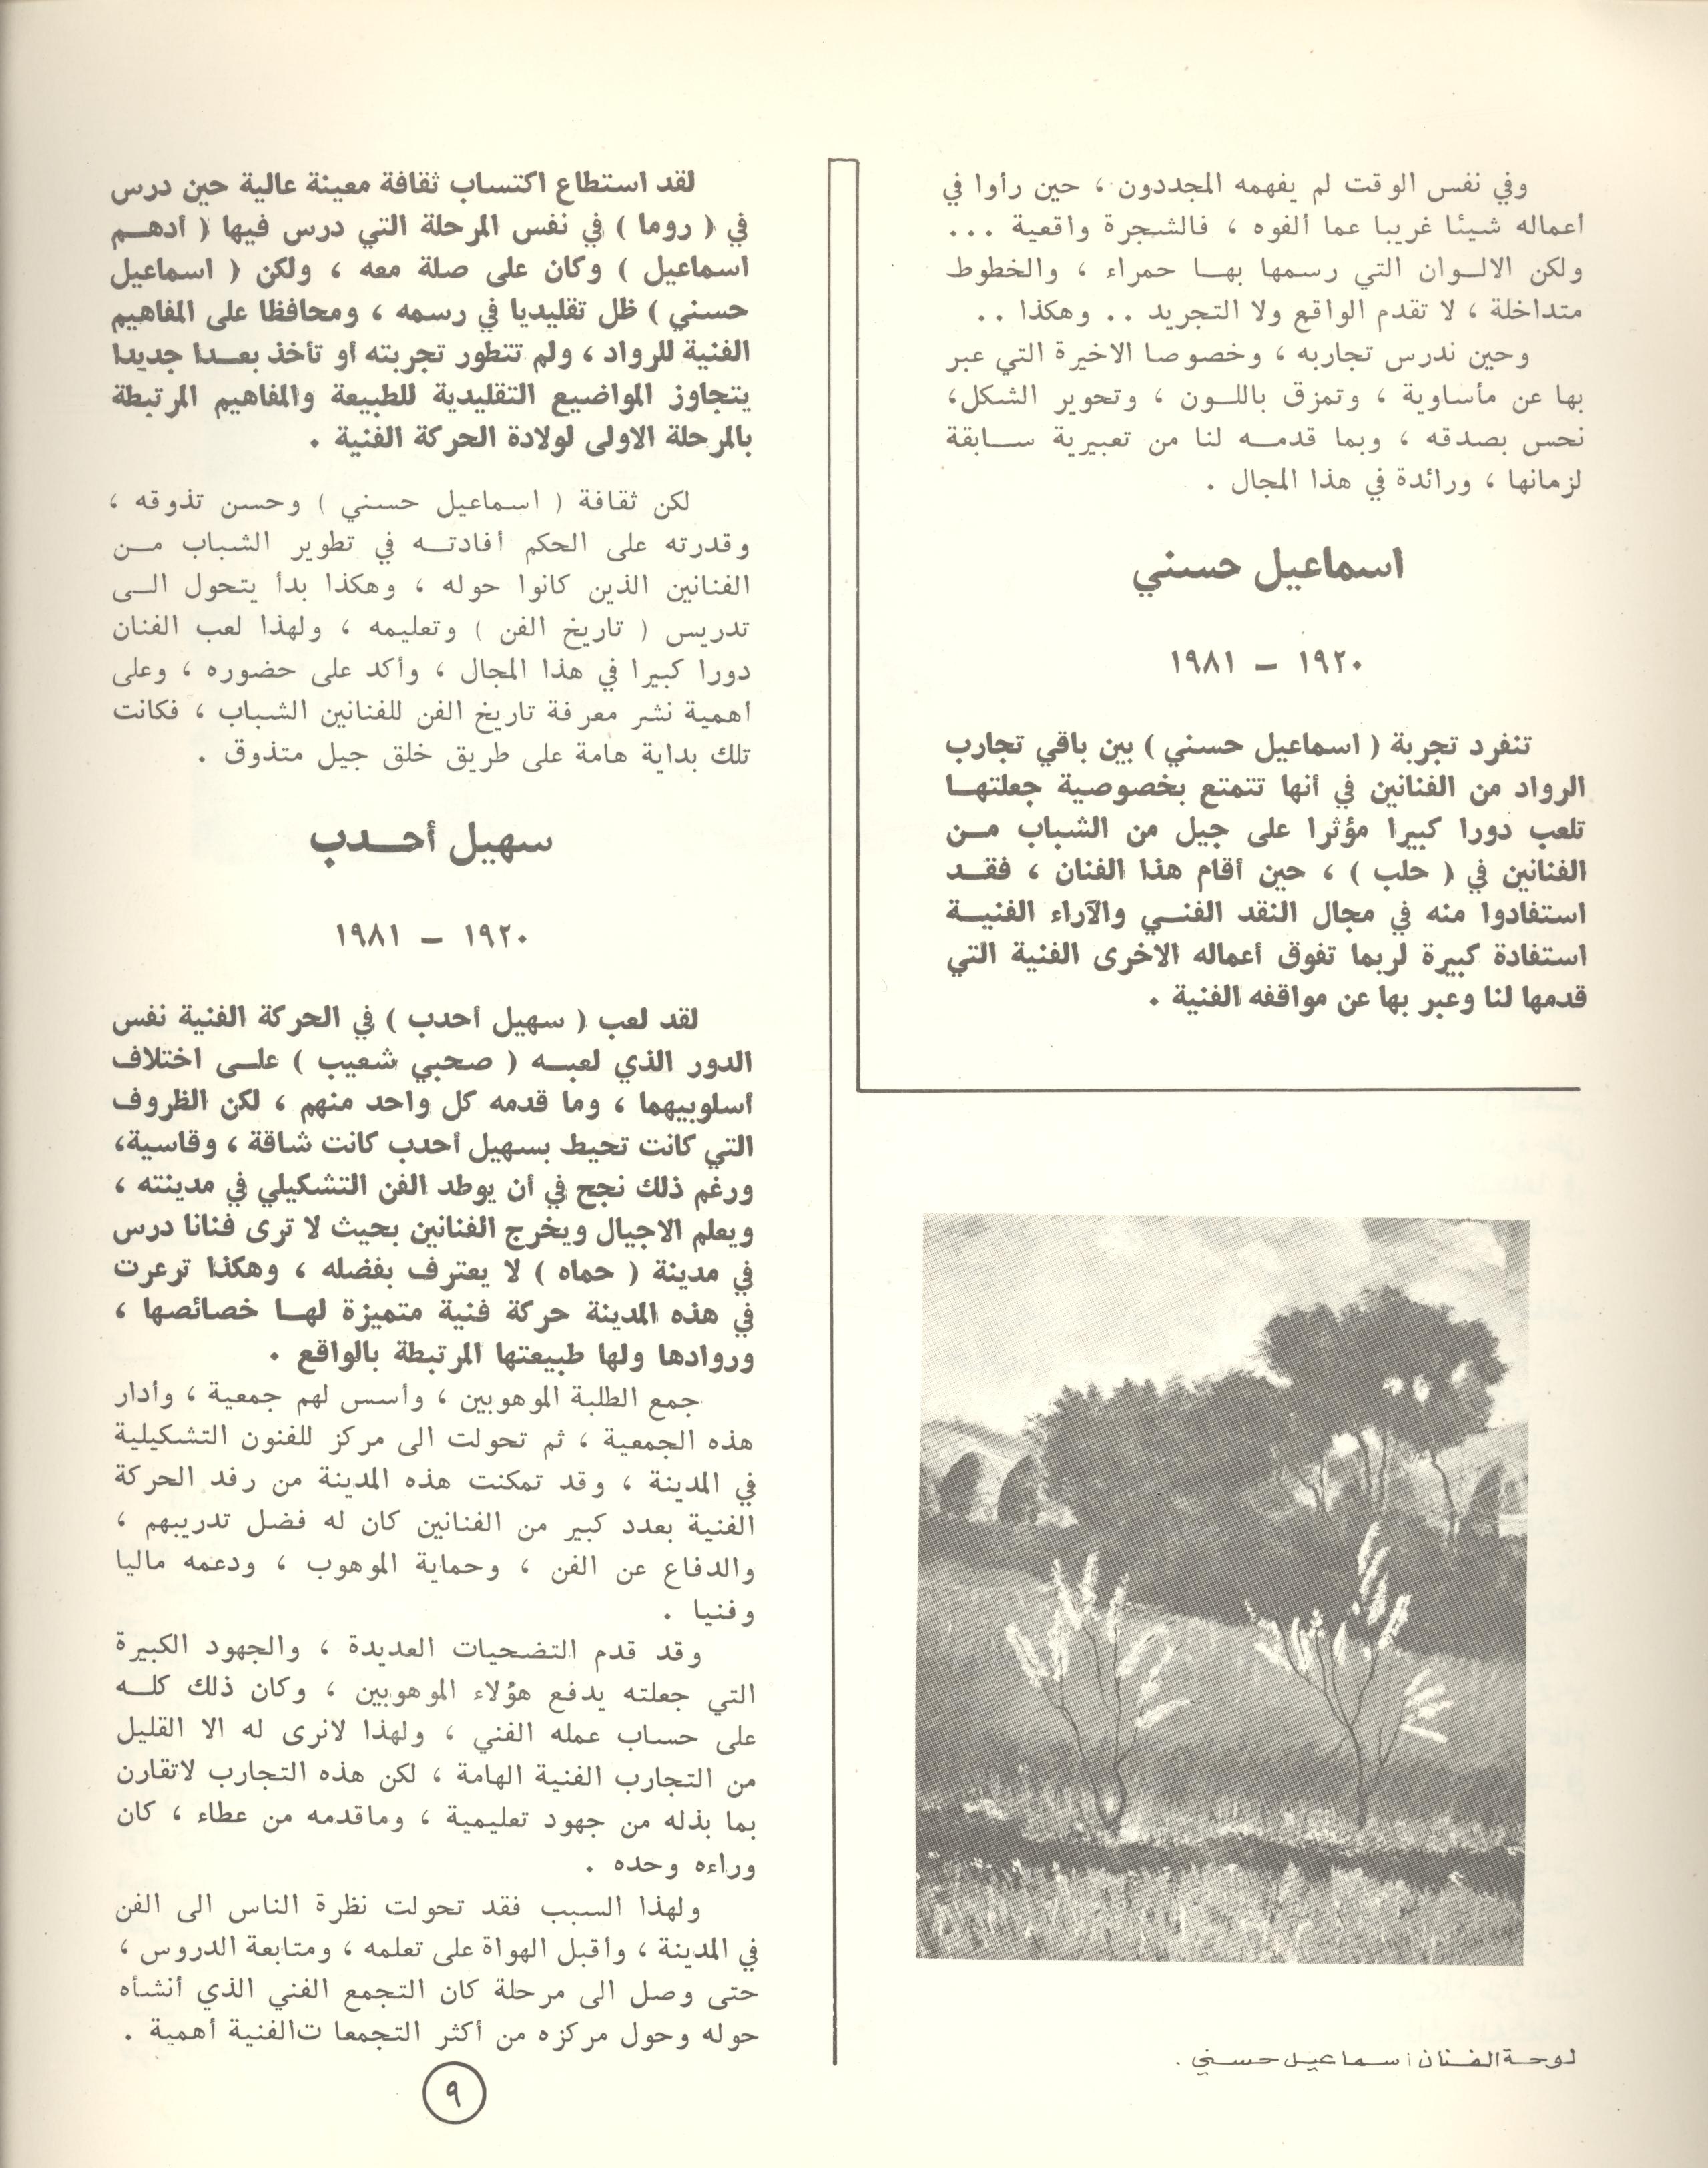 وفي نفس الوقت لم يفهمه المجددون ، حين رأوا في
أعماله شيئا غريبا عما ألفوه ، فالشجرة واقعية ...
ولكن الالـوان التي رسمها بهـا حمراء ، والخطوط
متداخلة ، لا تقدم الواقع ولا التجريد .. وهكذا ..
وحين ندرس تجاربه ، وخصوصا الاخيرة التي عبر
بها عن مأساوية ، وتمزق باللـون ، وتحوير الشكل،
نحس بصدقه ، وبما قدمـه لنا من تعبيرية سـابقة
لزمانها ، ورائدة في هذا المجال .
اسماعيل حسني
١٩٢٠ – ١٩٨١
تنفرد تجربة ( اسماعيل حسني ) بين باقي تجارب
الرواد من الفنانين في أنها تتمتع بخصوصية جعلتهـا
تلعب دورا كبيرا مؤثرا على جيل من الشباب مـن
الفنانين في ( حلب ) ، حين أقام هذا الفنان ، فقـد
استفادوا منه في مجال النقد الفنـي والآراء الفنيـة
استفادة كبيرة لربما تفوق أعماله الاخرى الفنية التي
قدمها لنا وعبر بها عن مواقفه الفنية .
لوحة الفنان اسماعيل حسني .
لقد استطاع اكتساب ثقافة معينة عالية حين درس
في ( روما ) في نفس المرحلة التي درس فيها ( أدهـم
اسماعيل ) وكان على صلة معه ، ولكن ( اسماعيل
حسني ) ظل تقليديا في رسمه ، ومحافظا على المفاهيم
الفنية للرواد ، ولم تتطور تجربته أو تأخذ بعـدا جديدا
يتجاوز المواضيع التقليدية للطبيعة والمفاهيم المرتبطة
بالمرحلة الاولى لولادة الحركة الفنية .
لكن ثقافة ( اسماعيل حسني ) وحسن تذوقه ،
وقدرته على الحكم أفادتـه في تطوير الشباب مـن
الفنانين الذين كانوا حوله ، وهكذا بدأ يتحول الـى
تدريس ( تاريخ الفن ) وتعليمه ، ولهذا لعب الفنان
دورا كبيرا في هذا المجال ، وأكد على حضوره ، وعلى
أهمية نشر معرفة تاريخ الفن للفنانين الشباب ، فكانت
تلك بداية هامة على طريق خلق جيل متذوق .
سهيل أحـدب
١٩٢٠ – ١٩٨١
لقد لعب ( سهيل أحدب ) في الحركة الفنية نفس
الدور الذي لعبـه ( صحبي شعيب ) علـى اختلاف
أسلوبيهما ، وما قدمه كل واحد منهم ، لكن الظروف
التي كانت تحيط بسهيل أحدب كانت شاقة ، وقاسية،
ورغم ذلك نجح في أن يوطد الفن التشكيلي في مدينته ،
ويعلم الاجيال ويخرج الفنانين بحيث لا ترى فنانا درس
في مدينة ( حماه ) لا يعترف بفضله ، وهكذا ترعرت
في هذه المدينة حركة فنية متميزة لهـا خصائصها ،
وروادها ولها طبيعتها المرتبطة بالواقع .
جمع الطلبة الموهوبين ، وأسس لهم جمعية ، وأدار
هذه الجمعية ، ثم تحولت الى مركز للفنون التشكيلية
في المدينة ، وقد تمكنت هذه المدينة من رفد الحركة
الفنية بعدد كبير من الفنانين كان له فضل تدريبهم ،
والدفاع عن الفن ، وحماية الموهوب ، ودعمه ماليا
وفنيا .
وقد قدم التضحيات العديدة ، والجهود الكبيرة
التي جعلته يدفع هؤلاء الموهوبين ، وكان ذلك كلـه
على حساب عمله الفني ، ولهذا لانرى له الا القليل
من التجارب الفنية الهامة ، لكن هذه التجارب لاتقارن
بما بذله من جهود تعليمية ، وماقدمه من عطاء ، كان
وراءه وحده .
ولهذا السبب فقد تحولت نظرة الناس الى الفن
في المدينة ، وأقبل الهواة على تعلمه ، ومتابعة الدروس ،
حتى وصل الى مرحلة كان التجمع الفني الذي أنشأه
حوله وحول مركزه من أكثر التجمعا ت الفنية أهمية .
٩